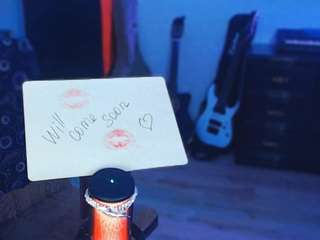 Will come soon ♡